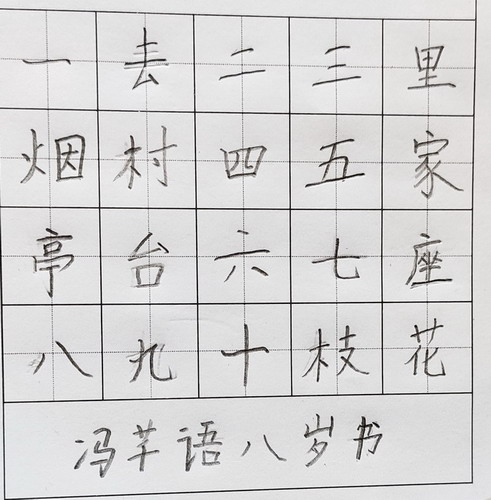 一去二三里
烟村四五家
亭台六七座
八九十枝花
冯芊语八岁书